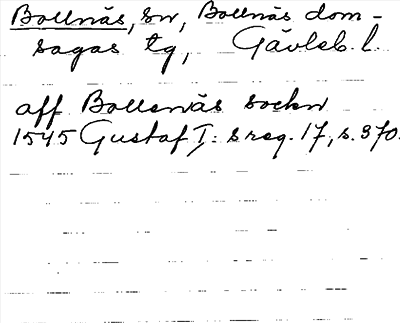 Bollnäs, sn, Bollnäs dom-
sagas tg, Gävleb. l.
aff Bollenäs sockn
1545 Gustaf I: s reg. 17, s. 370.